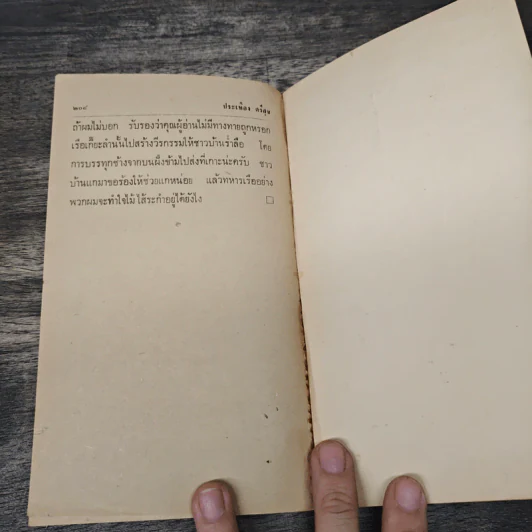 ๒๐๘ ประเทือง ศรีสุข
ถ้าผมไม่บอก รับรองว่าคุณผู้อ่านไม่มีทางทายถูกหรอก
เรือเกี๊ยะลำนั้นไปสร้างวีรกรรมให้ชาวบ้านร่ำลือ โดย
การบรรทุกช้างจากบนฝั่งข้ามไปส่งที่เกาะน่ะครับ ชาว
บ้านแกมาขอร้องให้ช่วยแกหน่อย แล้วทหารเรืออย่าง
พวกผมจะทำใจไม้ไส้ระกำอยู่ได้ยังไง